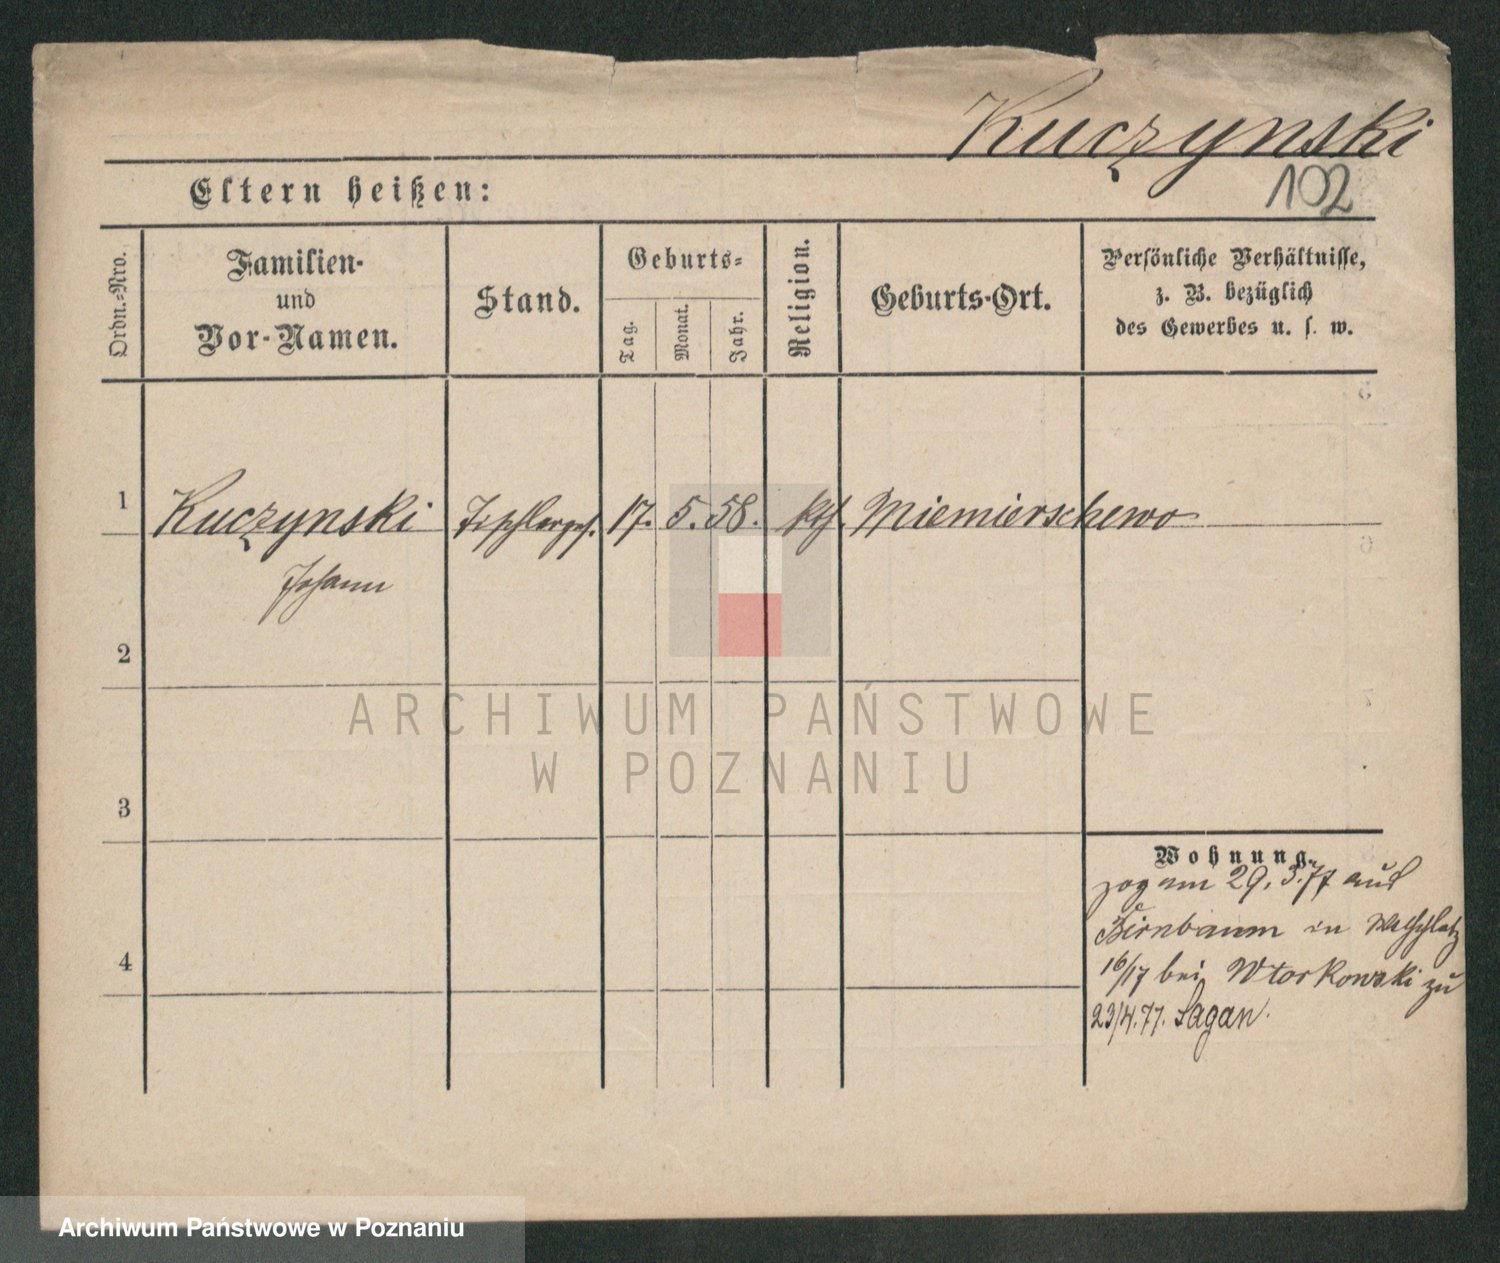 Kuczynski
102
Eltern heißen:
Ordn.-Nro.
Familien-
und
Vor-Namen.
Stand.
Geburts-
Tag.
Monat.
Jahr.
Religion.
Geburts-Ort.
Persönliche Verhältnisse,
z. B. bezüglich
des Gewerbes u. s. w.
1
Kuczynski Tischlerges. 17. 5. 58. kth. Miemierschewo
Johann
2
3
4
Wohnung.
zog am 29. 3. 77 aus
Birnbaum in Wallischei
16/17 bei Wtorkowski zu
23/4.77. Sagan.
ARCHIWUM PAŃSTWOWE
W POZNANIU
Archiwum Państwowe w Poznaniu